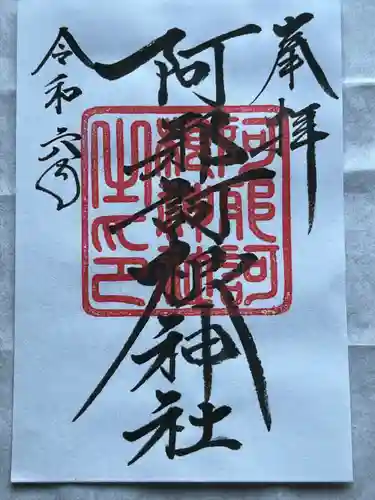 奉拝
阿那訶根神社
令和六年